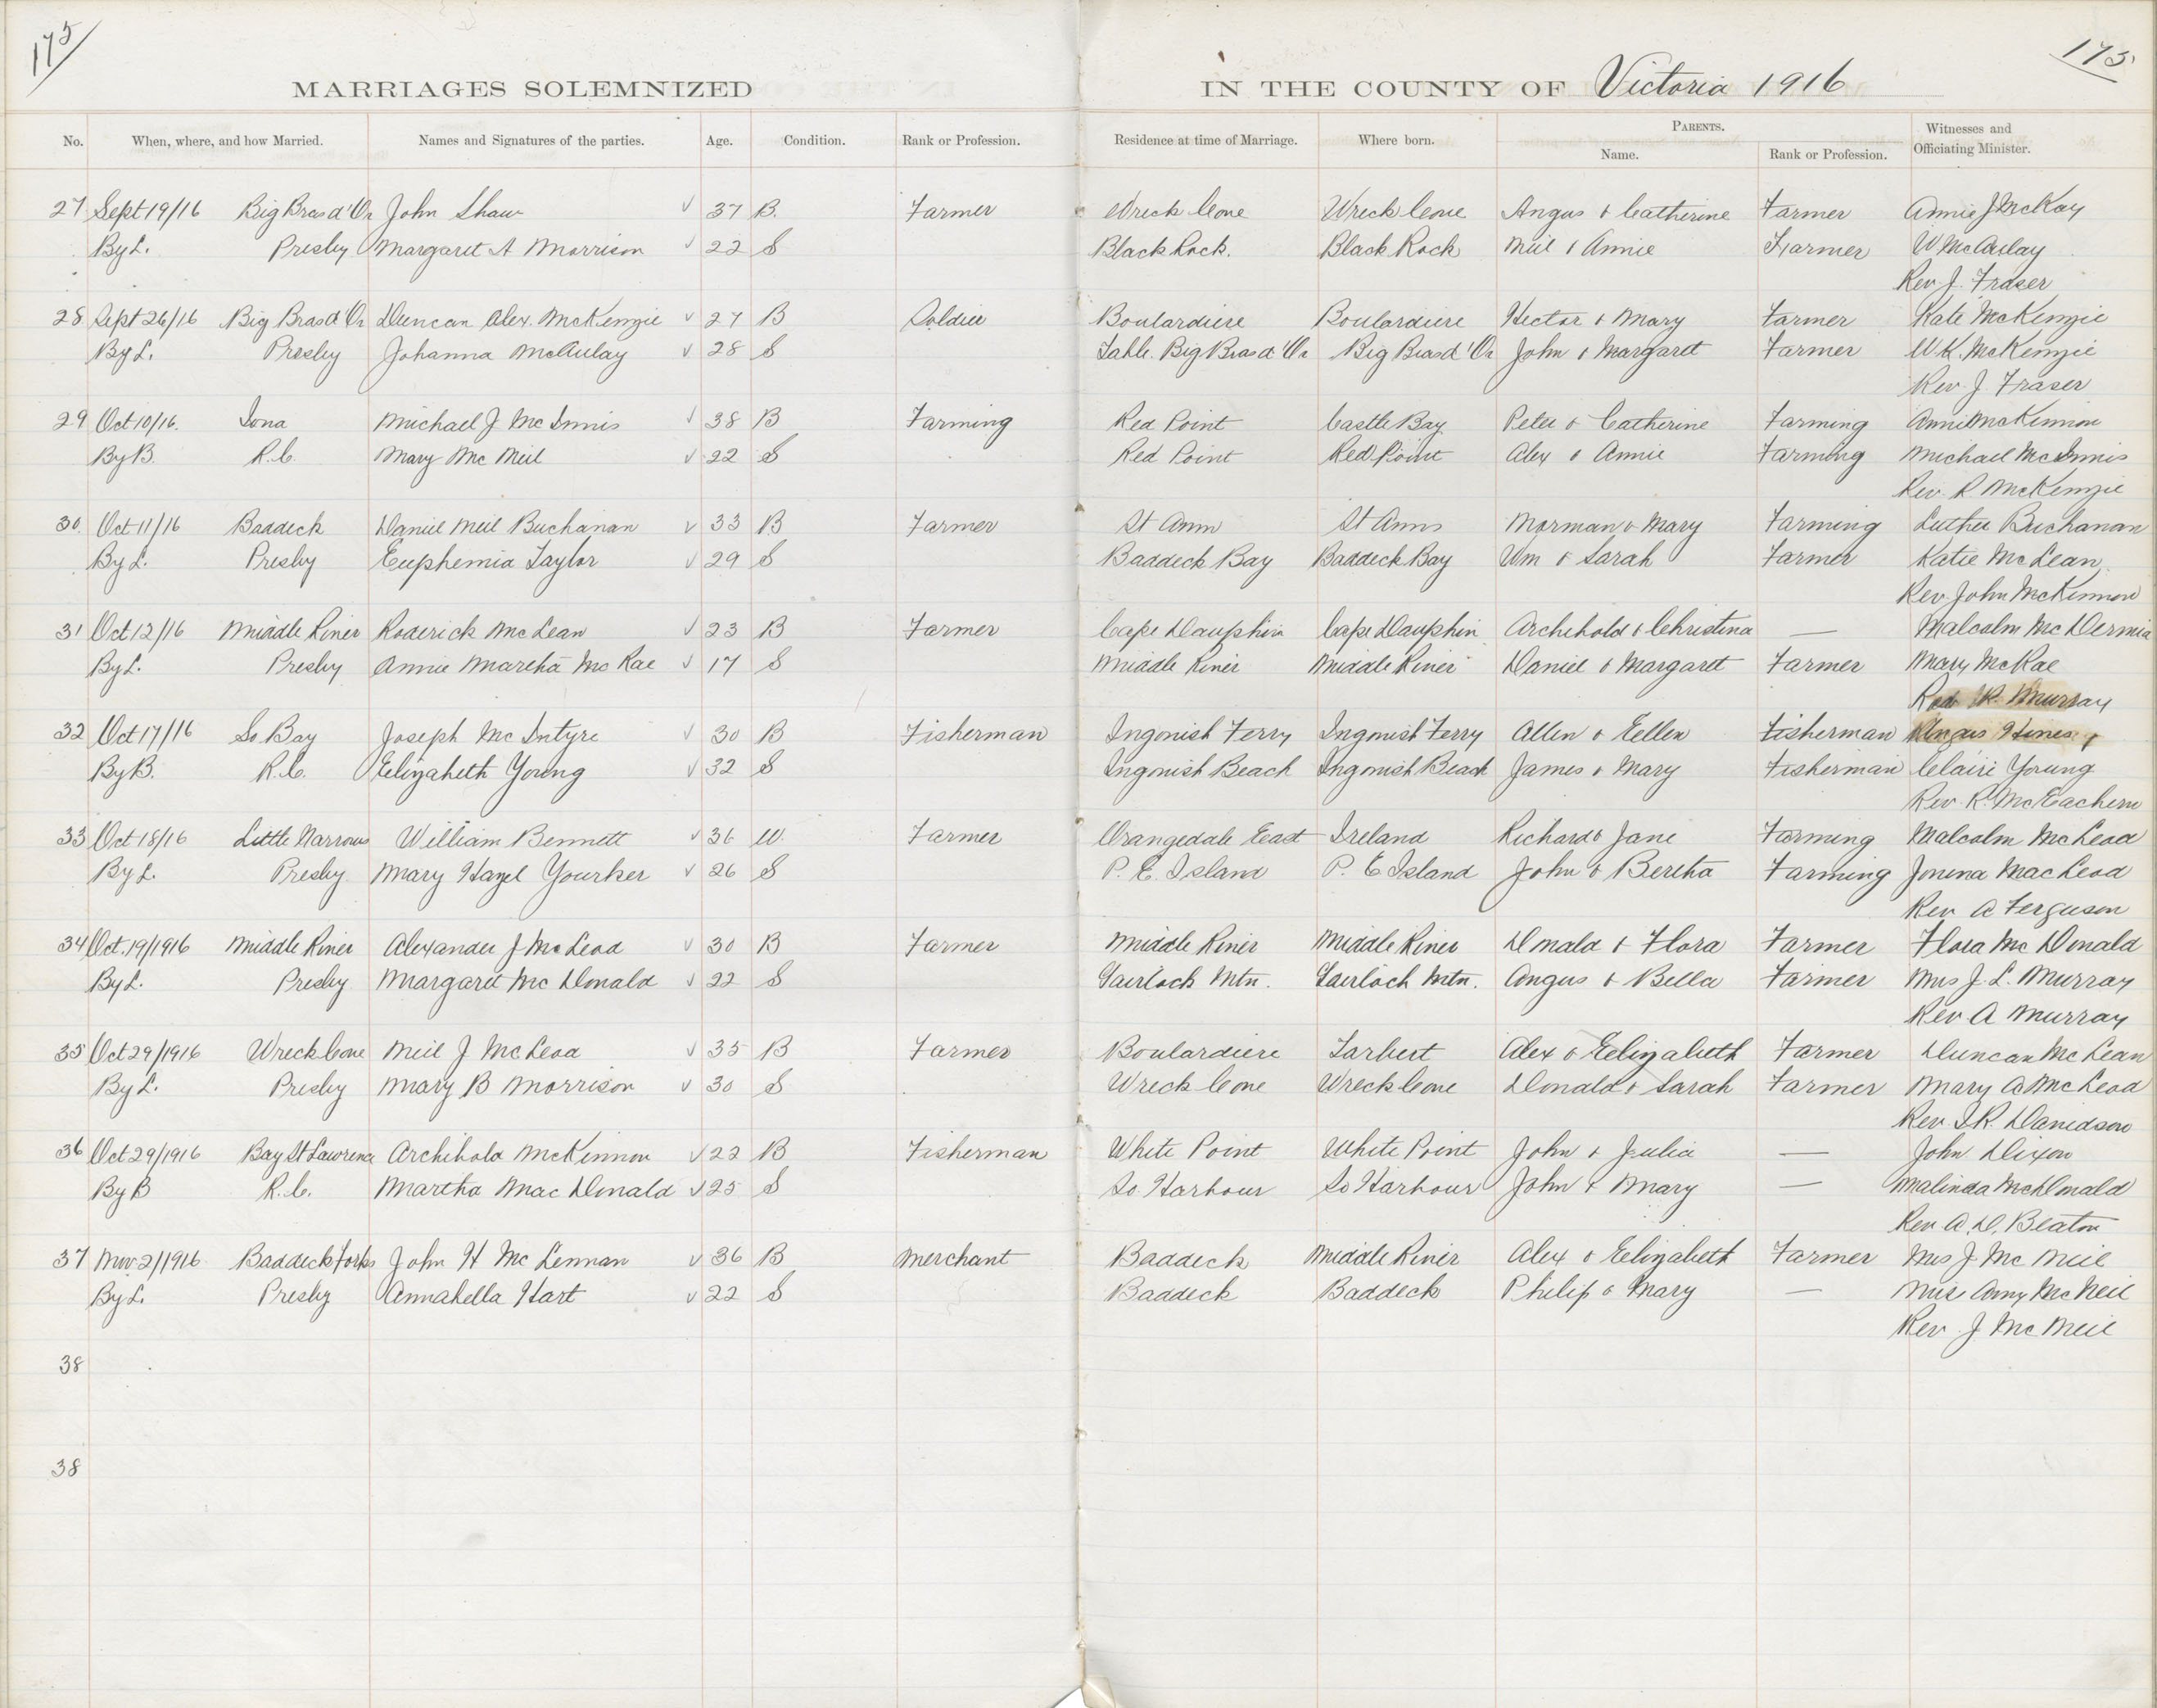 175
175
MARRIAGES SOLEMNIZED IN THE COUNTY OF Victoria 1916
No. When, where, and how Married. Names and Signatures of the parties. Age. Condition. Rank or Profession. Residence at time of Marriage. Where born. PARENTS. Name. Rank or Profession. Witnesses and Officiating Minister.
27 Sept 19/16 Big Bras d'Or John Shaw 37 B. Farmer Wreck Cove Wreck Cove Angus & Catherine Farmer Annie J McKay
By L. Presby Margaret A Morrison 22 S Black Rock. Black Rock Neil & Annie Farmer W McAulay
Rev J. Fraser
28 Sept 26/16 Big Bras d'Or Duncan Alex. McKenzie 27 B Soldier Boulardiere Boulardiere Hector & Mary Farmer Kate McKenzie
By L. Presby Johanna McAulay 28 S Table. Big Bras d'Or Big Bras d'Or John & Margaret Farmer W.K. McKenzie
Rev. J. Fraser
29 Oct 10/16. Iona Michael J McInnis 38 B Farming Red Point Castle Bay Peter & Catherine Farming Annie McKinnon
By B. R.C. Mary Mc Neil 22 S Red Point Red Point Alex & Annie Farming Michael McInnis
Rev. R McKenzie
30. Oct 11/16 Baddeck Daniel Neil Buchanan 33 B Farmer St Ann St Anns Norman & Mary Farming Luther Buchanan
By L. Presby Euphemia Taylor 29 S Baddeck Bay Baddeck Bay Wm & Sarah Farmer Katie McLean
Rev. John McKinnon
31 Oct 12/16 Middle River Roderick McLean 23 B Farmer Cape Dauphin Cape Dauphin Archibold & Christina — Malcolm McDermid
By L. Presby Annie Martha McRae 17 S Middle River Middle River Daniel & Margaret Farmer Mary McRae
Murray
32 Oct 17/16 So Bay Joseph McIntyre 30 B Fisherman Ingonish Ferry Ingonish Ferry Allen & Eellen Fisherman Angus Hines
By B. R.C. Eelizabeth Young 32 S Ingonish Beach Ingonish Beach James & Mary Fisherman Claire Young
Rev. R. McEachern
33 Oct 18/16 Little Narrows William Bennett 36 W. Farmer Orangedale East Ireland Richard & Jane Farming Malcolm McLeod
By L. Presby. Mary Hazel Yourker 26 S P. E. Island P. E Island John & Bertha Farming Jonena MacLeod
Rev A Ferguson
34 Oct. 19/1916 Middle River Alexander J McLeod 30 B Farmer Middle River Middle River Donald & Flora Farmer Flora McDonald
By L. Presby Margaret McDonald 22 S Gairloch Mtn. Gairloch Mtn. Angus & Bella Farmer Mrs J. L. Murray
Rev A Murray
35 Oct 29/1916 Wreck Cove Neil J McLeod 35 B Farmer Boulardiere Tarbert Alex & Eelizabeth Farmer Duncan McLean
By L. Presby Mary B Morrison 30 S Wreck Cove Wreck Cove Donald & Sarah Farmer Mary A McLeod
Rev. I.R. Davidson
36 Oct 29/1916 Bay St Lawrence Archibold McKinnon 22 B Fisherman White Point White Point John & Julia — John Dixon
By B R.C. Martha MacDonald 25 S So. Harbour So Harbour John & Mary — Malinda McDonald
Rev A. D. Beaton
37 Nov 2/1916 Baddeck Forks John H McLennan 36 B Merchant Baddeck Middle River Alex & Eelizabeth Farmer Mrs J. McNeil
By L. Presby Annabella Hart 22 S Baddeck Baddeck Philip & Mary — Miss Amy McNeil
Rev J McNeil
38
38